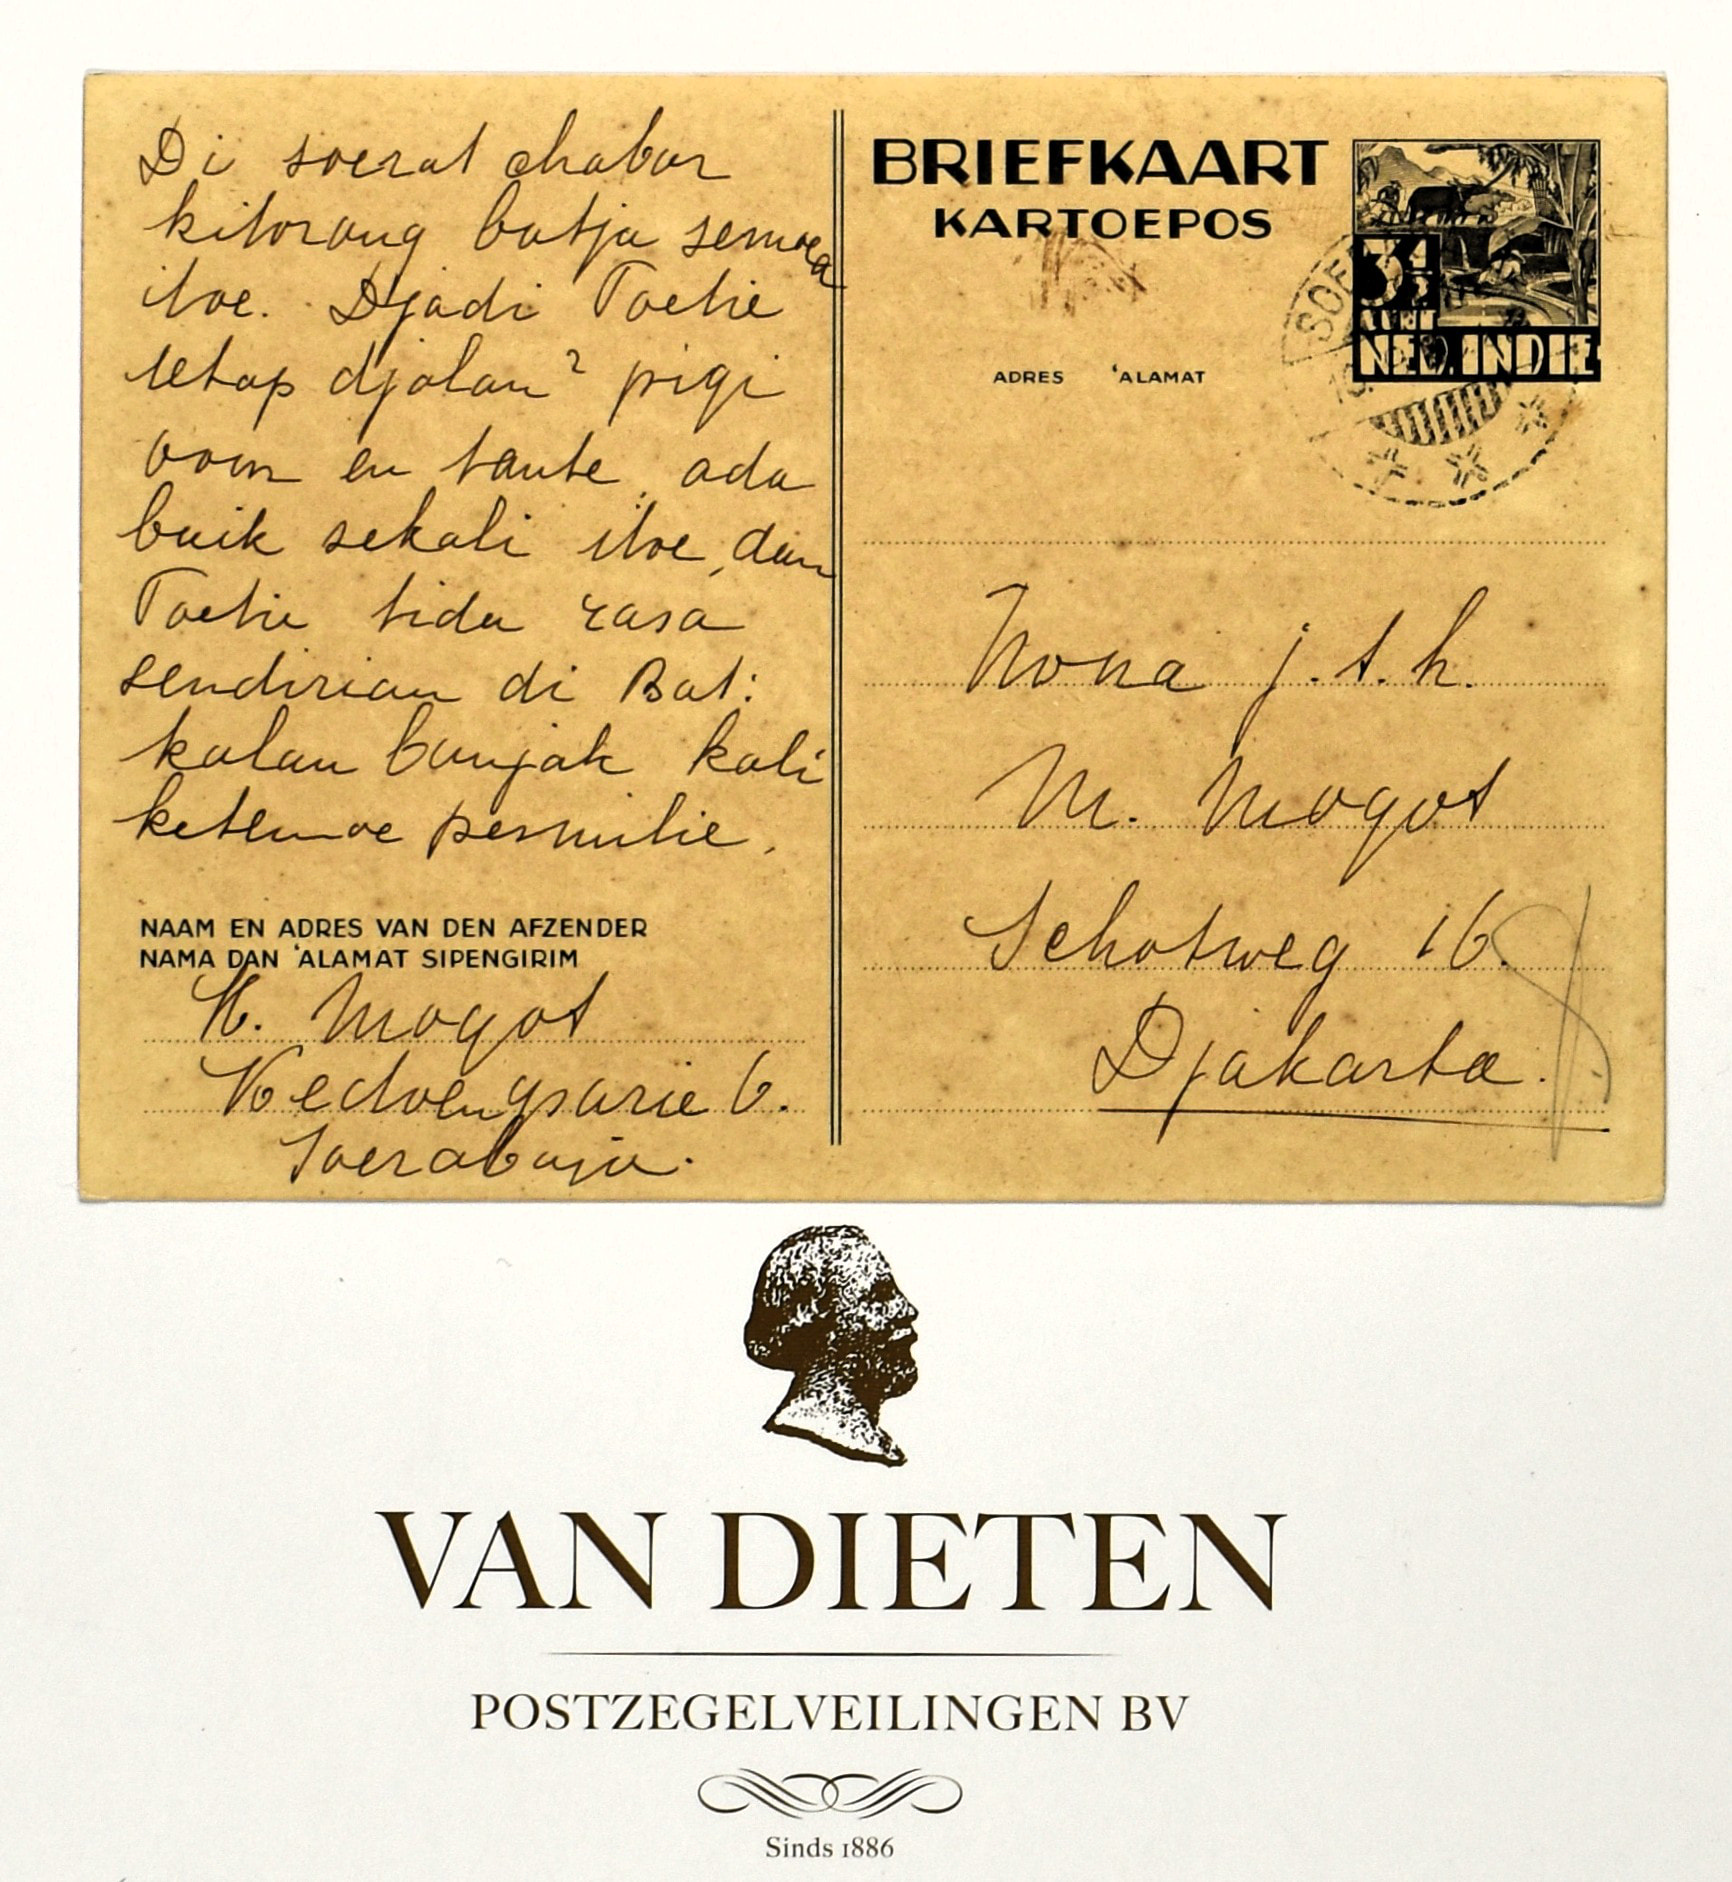 Di soerat chabar
kitorang batja semoea
itoe. Djadi Toetie
tetap djalan² pigi
oom en tante ada
baik sekali itoe, dan
Toetie tida rasa
sendirian di Bat:
kalau banjak kali
ketemoe permilie.
NAAM EN ADRES VAN DEN AFZENDER
NAMA DAN 'ALAMAT SIPENGIRIM
H. Mogot
Kedoengsarie 6.
Soerabaja.
BRIEFKAART
KARTOEPOS
ADRES 'ALAMAT
3½
NED. INDIE
SOE
Nona j.t.h.
M. Mogot
Schotweg 16.
Djakarta.
VAN DIETEN
POSTZEGELVEILINGEN BV
Sinds 1886